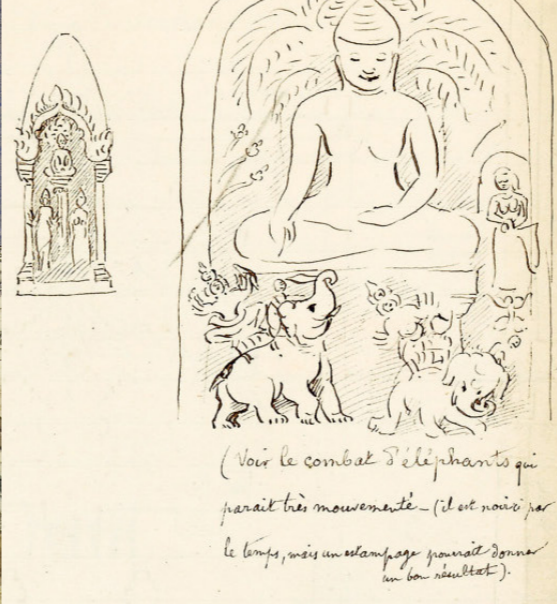 (Voir le combat d'éléphants qui
parait très mouvementé – (il est noirci par
le temps, mais un estampage pourrait donner
un bon résultat).